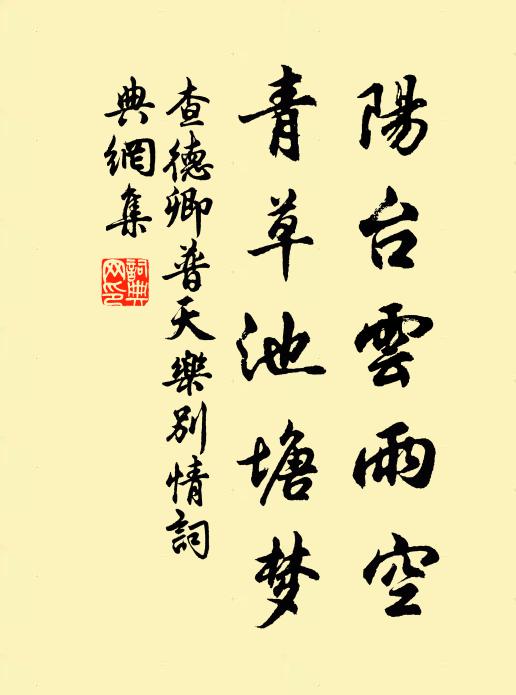 陽台雲雨空
青草池塘梦
查德卿普天樂别情詞
典網集
詞典
网印